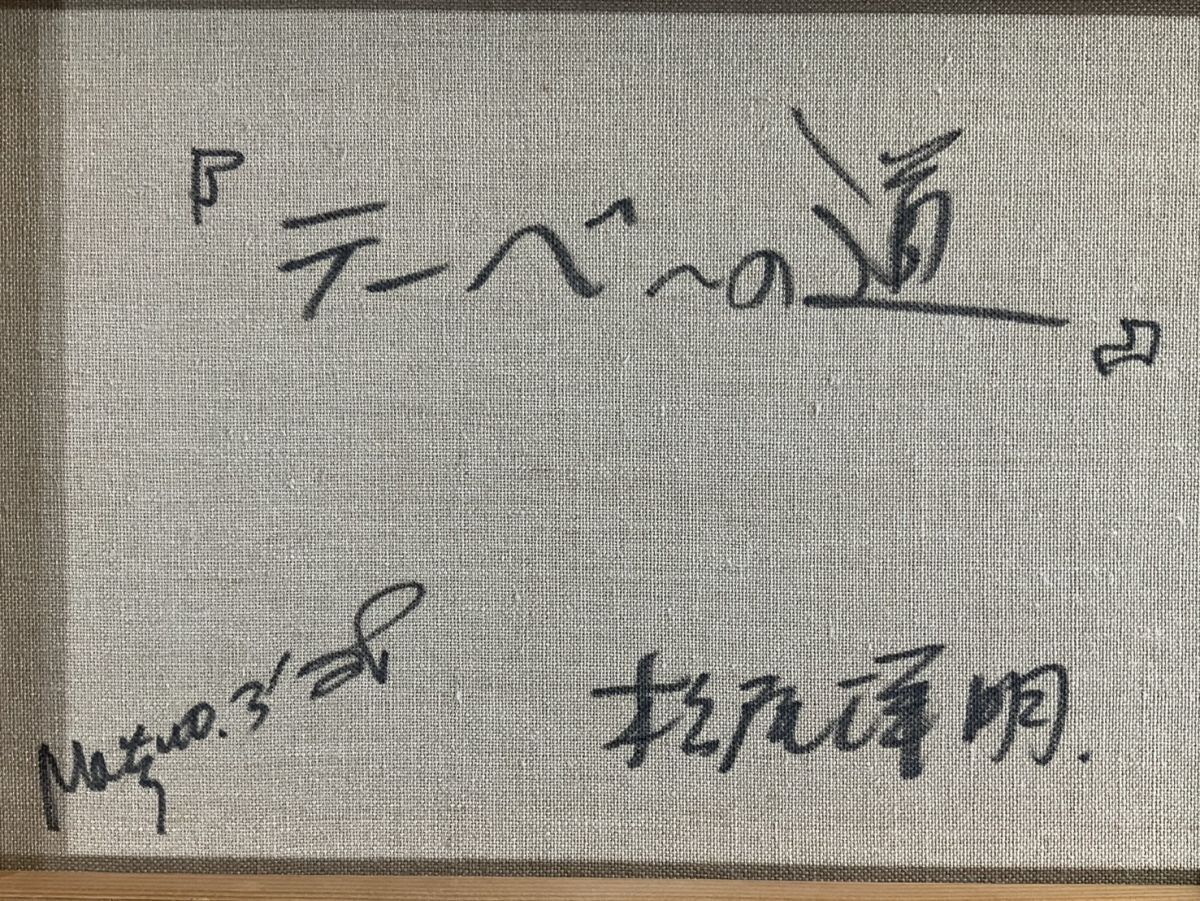 『テーベへの道』
Matsuo.
松尾洋明.